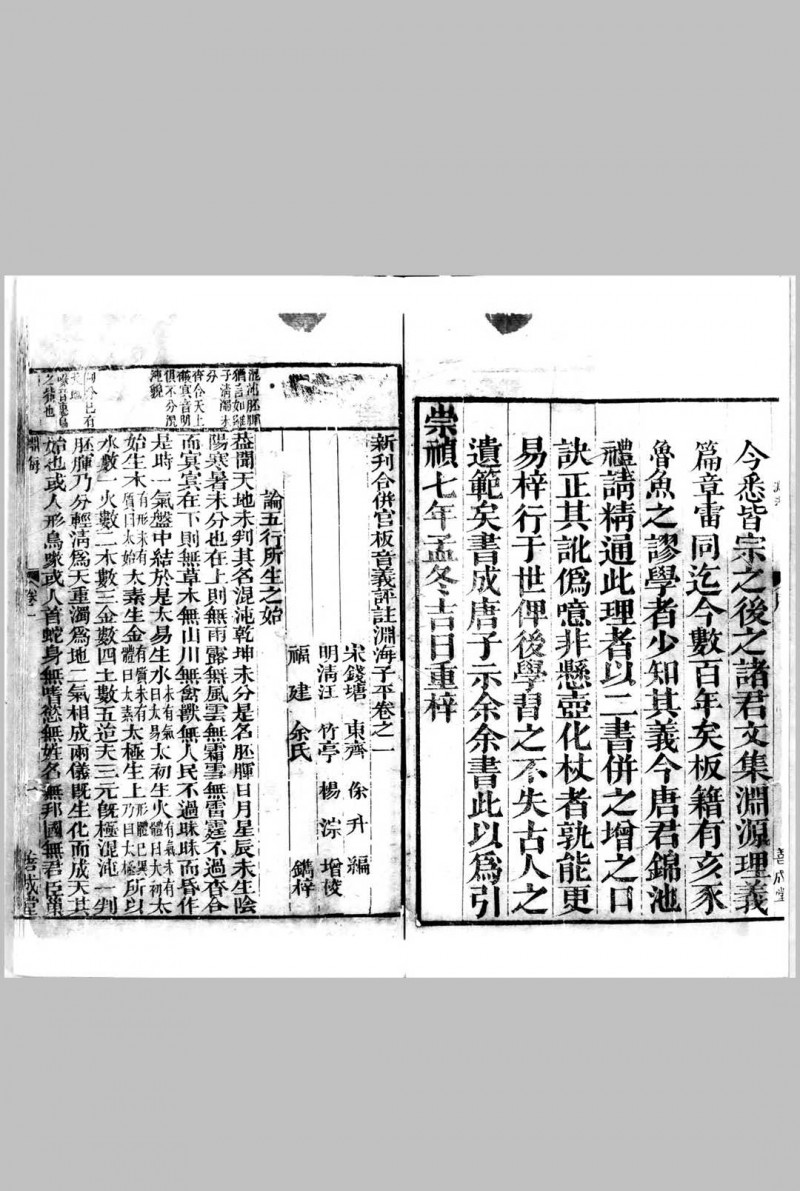 今悉皆宗之後之諸君文集淵源理義
篇章雷同迄今數百年矣板籍有亥豕
魯魚之謬學者少知其義今唐君錦池
禮請精通此理者以二書併之增之口
訣正其訛僞噫非懸壺化杖者孰能更
易梓行于世俾後學習之不失古人之
遺範矣書成唐子示余余書此以爲引
崇禎七年孟冬吉日重梓
善成堂
新刊合併官板音義評註淵海子平卷之一
宋錢塘 東齊 徐升 編
明清江 竹亭 楊淙 增校
福建 余氏 鐫梓
論五行所生之始
蓋聞天地未判其名混沌乾坤未分是名胚腪日月星辰未生陰
陽寒暑未分也在上則無雨露無風雲無霜雪無雷霆不過杳合
而冥冥在下則無草木無山川無禽獸無人民不過昧昧而昏作
是時一氣盤中結於是太易生水未有氣曰太易太初生火有氣未有體曰太初太
始生木有形未有質曰太始太素生金有質未有體曰太素太極生上形體已具乃曰太極所以
水數一火數二木數三金數四土數五迨夫三元旣極混沌一判
胚腪乃分輕淸爲天重濁爲地二氣相成兩儀旣生化而成天其
始也或人形鳥喙或人首蛇身無嗜慾無姓名無邦國無君臣巢
混沌胚腪
猶言如雞
子清濁未
分
杳合天上
冥音明
俱不分混
沌貌
淵海
卷一
一
善成堂